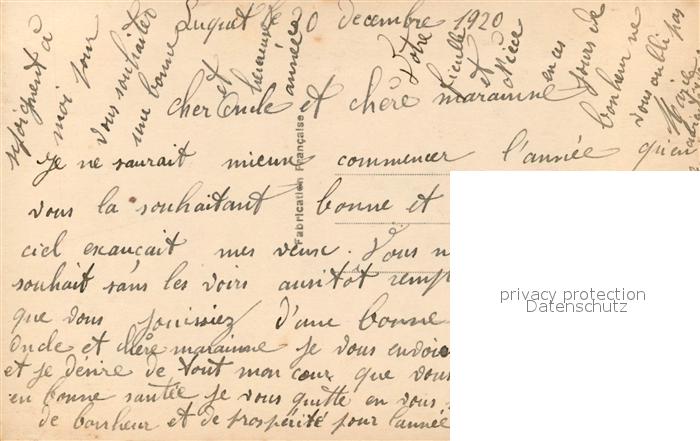 Luquet le 20 decembre 1920
cher Oncle et chère marainne
Je ne saurait mieux commencer l'année qu'en
vous la souhaitant bonne et
ciel exauçait mes veux. Vous n
souhait sans les voirs ausitôt remp
que vous jouissiez d'une bonne
Oncle et chère marainne je vous envoie
et je désire de tout mon cœur que vous
en bonne santée je vous quitte en vous
de bonheur et de prospérité pour l'année
se joignent à
moi pour
vous souhaiter
une bonne
et
heureuse
année
Votre
fieulle
et
Nièce
en ces
jours de
bonheur ne
vous oublie pas
Marie
Fabrication Française
privacy protection
Datenschutz